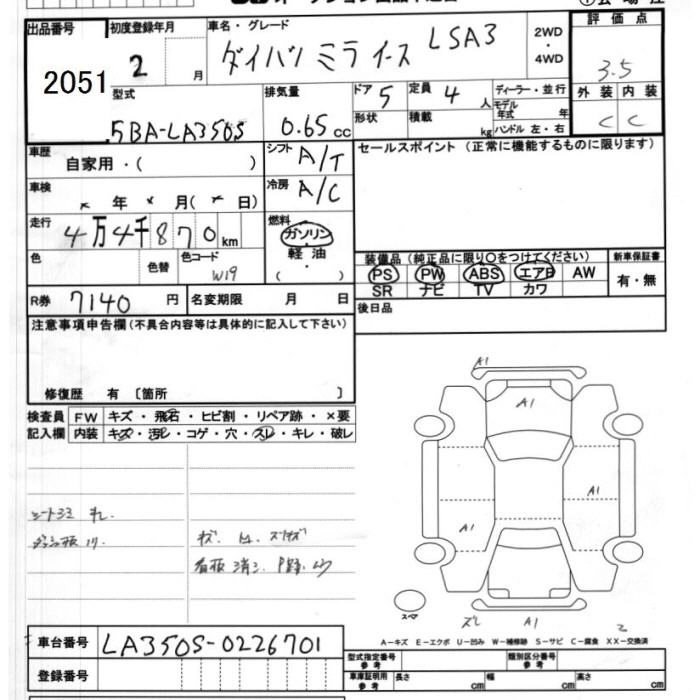 出品番号 初度登録年月 車名・グレード 評価点
2051 2 月 ダイハツ ミライース LSA3 2WD・4WD 3.5
型式 排気量 ドア 5 定員 4 人 ディーラー・並行 外装 内装
5BA-LA350S 0.65 cc 形状 積載 kg モデル年式 年 ハンドル 左・右 C C
車歴 自家用・( ) シフト A/T セールスポイント (正常に機能するものに限ります)
車検 × 年 × 月 ( × 日) 冷房 A/C
走行 4万4千870km 燃料 ガソリン・軽油 ( ・ )
色 色替 色コード W19 装備品 (純正品に限り○をつけてください) 新車保証書
PS PW ABS エアB AW 有・無
SR ナビ TV カワ
R券 7140 円 名変期限 月 日 後日品
注意事項申告欄 (不具合内容等は具体的に記入して下さい)
修復歴 有 〔箇所 〕
検査員記入欄 FW キズ・飛石・ヒビ割・リペア跡・×要
内装 キズ・汚レ・コゲ・穴・スレ・キレ・破レ
A1
A1
A1
A1
スレ A1
スペア
A-キズ E-エクボ U-凹み W-補修跡 S-サビ C-腐食 XX-交換済
車台番号 LA350S-0226701
型式指定番号 参考 類別区分番号 参考
登録番号 車庫証明用 参考 長さ cm 幅 cm 高さ cm